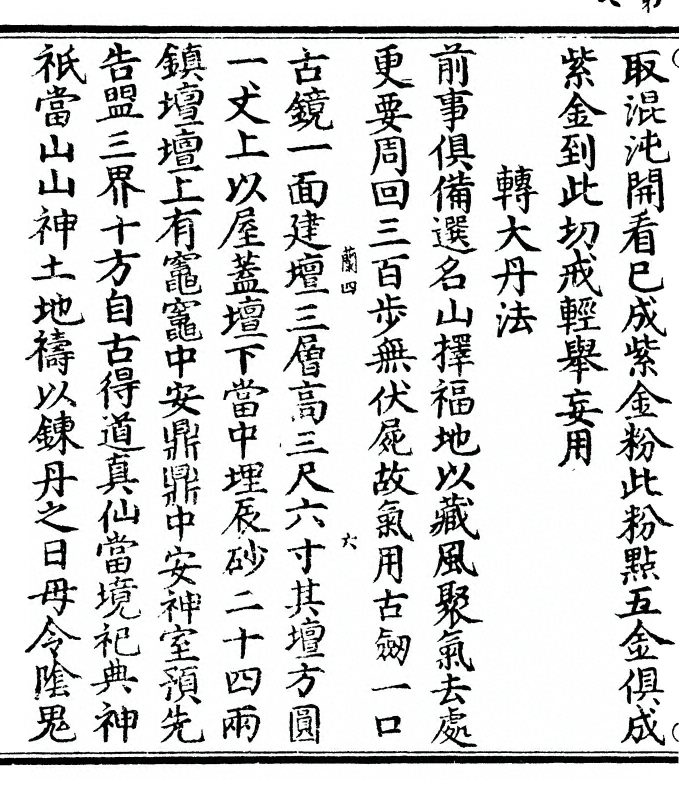 取混沌開看已成紫金粉此粉點五金俱成
紫金到此切戒輕舉妄用
轉大丹法
前事俱備選名山擇福地以藏風聚氣去處
更要周回三百步無伏屍故氣用古劒一口
蘭四 六
古鏡一面建壇三層高三尺六寸其壇方圓
一丈上以屋蓋壇下當中埋辰砂二十四兩
鎮壇壇上有竈竈中安鼎鼎中安神室預先
告盟三界十方自古得道真仙當境祀典神
祇當山山神土地禱以鍊丹之日毋令陰鬼